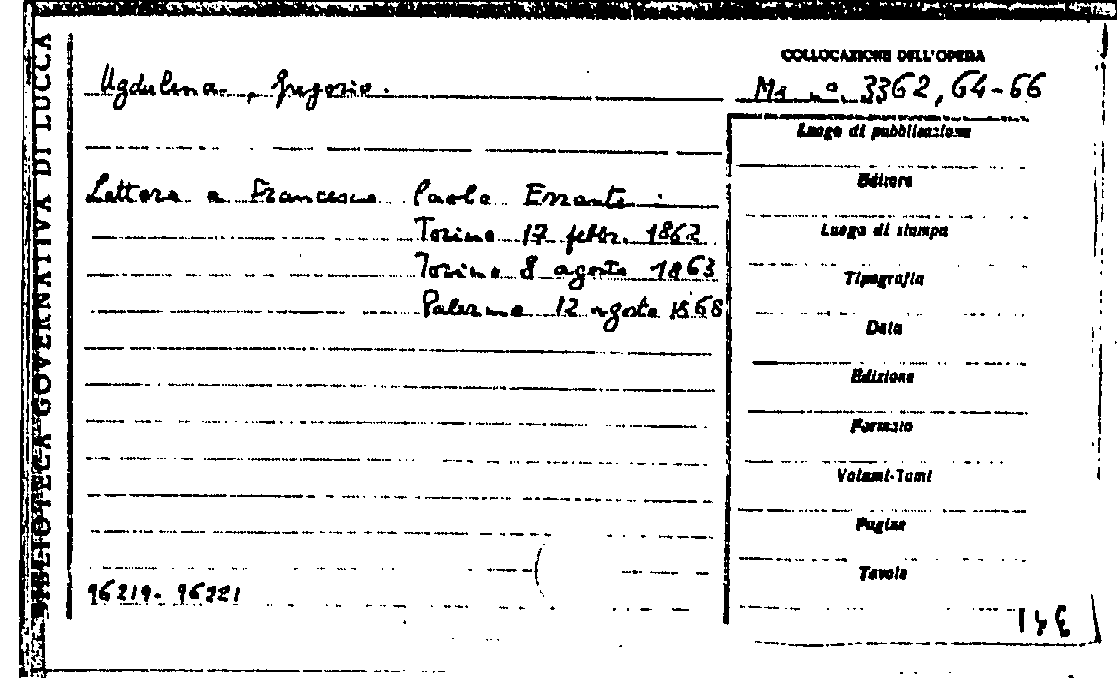 BIBLIOTECA GOVERNATIVA DI LUCCA
COLLOCAZIONE DELL'OPERA
Ugdulena, Gregorio.
Ms. n.° 3362, 64-66
Luogo di pubblicazione
Lettere a Francesco Paolo Errante:
Editore
Torino 17 febbr. 1862
Luogo di stampa
Torino 8 agosto 1863
Tipografia
Palermo 12 agosto 1868
Data
Edizione
Formato
Volumi-Tomi
Pagine
Tavole
96219-96221